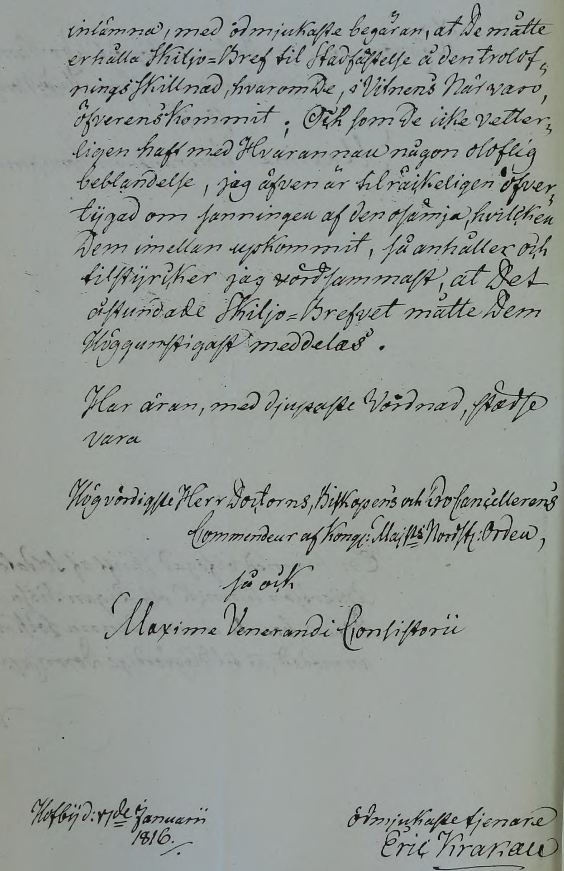 inlämna, med ödmjukaste begäran, at De måtte
erhålla Skiljo=Bref til Stadfästelse å den trolof-
nings Skillnad, hvarom De, i Vitnens Närvaro,
öfverenskommit; Och som De icke vetter-
ligen haft med Hvarannan någon oloflig
beblandelse, jag äfven är tilräckeligen öfver-
tygad om sanningen af den osämja, hvilcken
Dem imellan upkommit, så anhåller och
tilstyrcker jag vördsammast, at Det
åstundade Skiljo=Brefvet måtte Dem
Höggunstigast meddelas.
Har äran, med djupaste Vördnad, städse
vara
Högvördigste Herr Doctorns, Biskopens och ProCancellerens
Commendeur af Kongl: Maj:ts Nordst: Orden,
så ock
Maxime Venerandi Consistorii
Hofby d: 17de Januarii
1816.
ödmjukaste tjenare
Eric Krakau